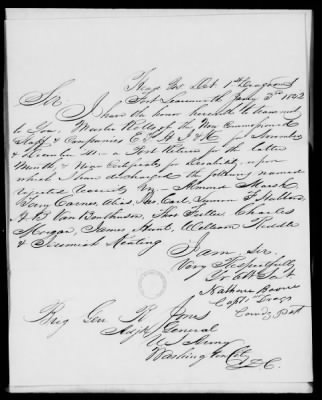 Head Qrs Det. 1st Dragoons
Fort Leavenworth Jany 3rd 1842
Sir
I have the honor herewith to transmit
to you, Muster Rolls of the Non Commissioned
Staff & Companies E, I & K for November
& December 1841 - a Post Return for the latter
Month & Certificates for Disability, upon
which I have discharged the following named
rejected recruits Viz - Almond Marsh
Terry Carnes Alias Carl, Lyman F.
A. B. Van Benthusen, Thos Fuller Charles
Morgan, James Hunt, William Riddle
& Jeremiah Keating
I am, Sir,
Very Respectfully
Yr Obt Svt
Nathan Boone
Capt. Drags
Comdg Post
Brig Gen. R. Jones
Adjt. General
U S Army
Washington City
D. C.